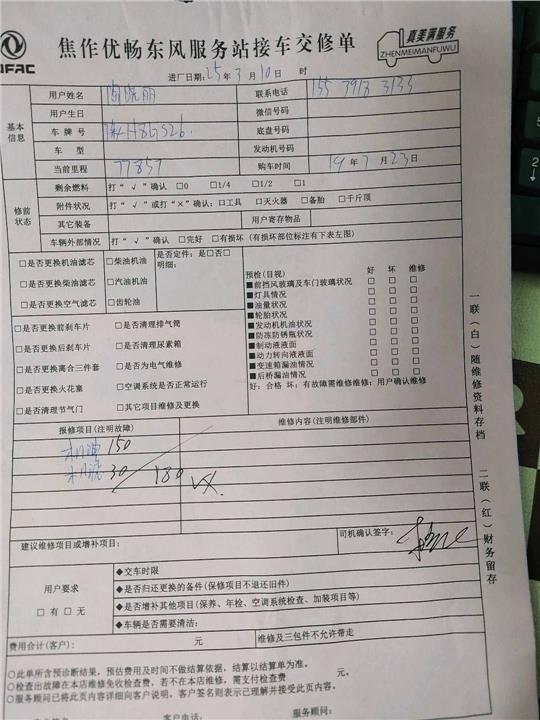 焦作优畅东风服务站接车交修单
真美满服务
ZHENMEIMANFUWU
进厂日期: 25年 月10日 时
基本信息
用户姓名 联系电话 155 3918 3133
用户生日 微信号码
车牌号 底盘号码
车型 发动机号码
当前里程 77857 购车时间 19年7月23日
修前状态
剩余燃料 打“√”确认 □0 □1/4 □1/2 □1
附件状况 打“√”或打“×”确认:□工具 □灭火器 □备胎 □千斤顶
其它装备 用户寄存物品
车辆外部情况 打“√”确认 □完好 □有损坏(有损坏部位标注有下表左图)
□是否更换机油滤芯 □柴油机油 是否定件:是□否□
明细:
□是否更换柴油滤芯 □汽油机油
□是否更换空气滤芯 □齿轮油
□是否更换前刹车片 □是否清理排气筒
□是否更换后刹车片 □是否清理尿素箱
□是否更换离合三件套 □是否为电气维修
□是否更换火花塞 □空调系统是否正常运行
□是否清理节气门 □其它项目维修及更换
预检(目视) 好 坏 维修
■前挡风玻璃及车门玻璃状况 □ □ □
■灯具情况 □ □ □
■油量状况 □ □ □
■轮胎状况 □ □ □
■发动机机油状况 □ □ □
■防冻防锈瓶状况 □ □ □
■制动液液面 □ □ □
■动力转向液液面 □ □ □
■变速箱漏油情况 □ □ □
■后桥漏油情况 □ □ □
好:合格 坏:有故障需维修维修:用户确认维修
报修项目(注明故障) 维修内容(注明维修部件)
150
30
180
建议维修项目或增补项目:
司机确认签字:
用户要求
□有□无
◆交车时限
◆是否归还更换的备件(保修项目不退还旧件)
◆是否增补其他项目(保养、年检、空调系统检查、加装项目等)
◆车辆是否需要清洁:
费用合计(客户): 元 维修及三包件不允许带走
○此单所含预诊断结果,预估费用及时间不做结算依据,结算以结算单为准。
○检查出故障在本店维修免收检查费,若不在本店维修,需支付检查费 元。
○服务顾问已将此页内容详细向客户说明,客户签名则表示已理解并接受此页内容。
客户电话: 服务顾问:
一联(白)随维修资料存档
二联(红)财务留存